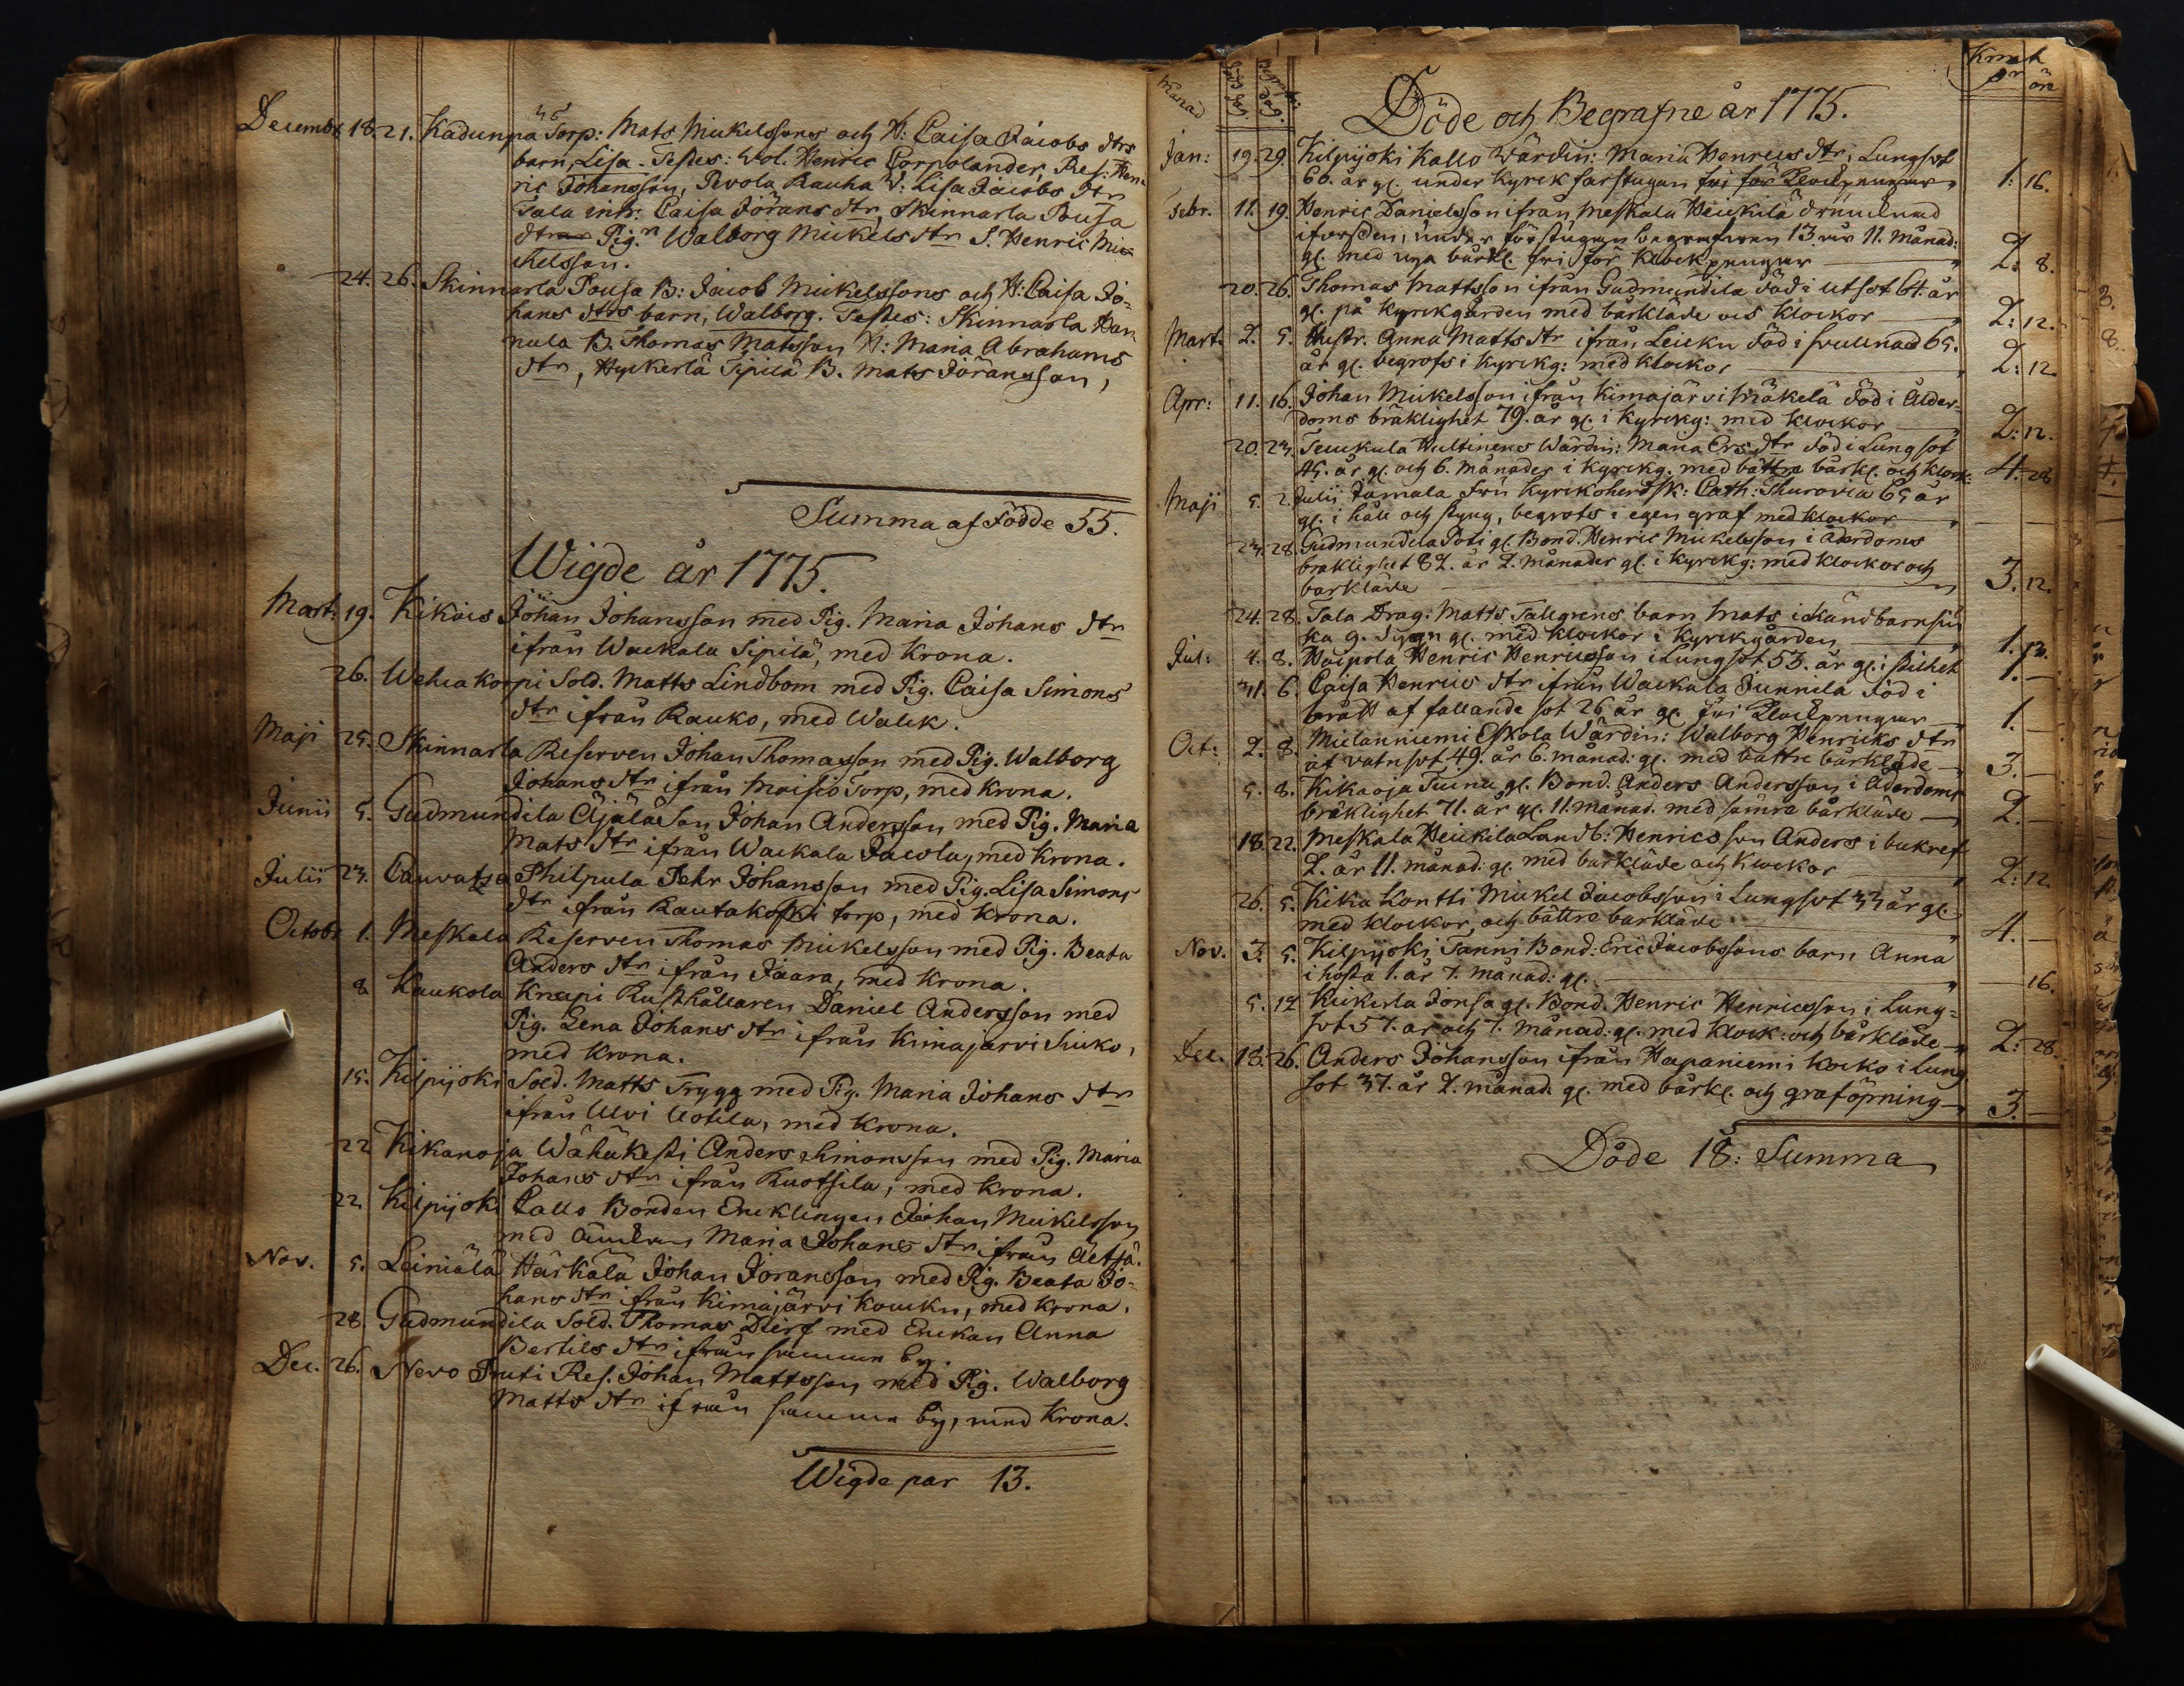 Decembr 18. 21. Kadunpä Torp: Mats Mickelssons och H: Caisa Jacobs dtrs
barn, Lisa. Testes: Vol. Henric Corpolander, Res: Hen-
ric Johansson, Pevola Rauha W: Lisa Jacobs dtr
Tala inh: Caisa Jörans dtr, Skinnarla Pusa
dtr Pig:n Walborg Mickels dtr S. Henric Mic-
kelsson.
24. 26. Skinnarla Pousa B: Jacob Mickelssons och H: Caisa Jo-
hans dtrs barn, Walborg. Testes: Skinnarla Han-
nula B. Thomas Matsson H: Maria Abrahams
dtr, Hyrkerlä Sipilä B. Mats Jöransson,
Summa af Födde 55.
Wigde år 1775.
Mart: 19. Kikois Johan Johansson med Pig. Maria Johans dtr
ifrån Wackala Sipilä, med Krona.
26. Weheakorpi Sold. Matts Lindbom med Pig. Caisa Simons
dtr ifrån Rauko, med Walck.
Maji 25. Skinnarla Reserven Johan Thomasson med Pig. Walborg
Johans dtr ifrån Maisio Torp, med Krona.
Junii 5. Gudmundila Äijälä Son Johan Andersson med Pig. Maria
Mats dtr ifrån Wackala Jacola, med Krona.
Julii 23. Cauvatsa Philpula Pehr Johansson med Pig. Lisa Simons
dtr ifrån Rautakoski torp, med Krona.
Octobr 1. Meskala Reserven Thomas Mickelsson med Pig. Beata
Anders dtr ifrån Jaara, med Krona.
8 Kaukola Knapi Rusthållaren Daniel Andersson med
Pig. Lena Johans dtr ifrån Kimajärvi Luko,
med Krona.
15. Kilpijoki Sold. Matts Trygg med Pig. Maria Johans dtr
ifrån Ulvi Uotila, med Krona.
22 Kikanoja Wähäkesti Anders Simonsson med Pig. Maria
Johans dtr ifrån Ruotsila, med Krona.
22 Kilpijoki Callo Bonden Encklingen Johan Mickelsson
med Änckan Maria Johans dtr ifrån Äetsä.
Nov. 5. Leiniälä Härkälä Johan Joransson med Pig. Beata Jo-
hans dtr ifrån Kimajärvi Koucku, med Krona.
28. Gudmundila Sold. Thomas Diirf med Enckan Anna
Bertils dtr ifrån samma by.
Dec. 26. Nevo Pruti Res. Johan Mattsson med Pig. Walborg
Matts dtr ifrån samma by, med Krona.
Wigde par 13.
Månad
Död dag.
Begrafn: dag.
Döde och Begrafne år 1775.
Kmt
öre
Jan: 19. 29. Kilpijoki Kallo Wärdin: Maria Henrics dtr, Lungsot
60. år gl. under Kyrck farstugan fri för Klockpengar 1: 16.
Febr. 11. 19. Henric Danielsson ifrån Meskala Heickilä druncknad
iforsden, under förstugun begrafwen 13. år 11. Månad:
gl. med nya bårkl. fri för klockpengar 2: 8.
20. 26. Thomas Mattsson ifrån Gudmundila död i utsot 64. år
gl. på Kyrkgården med bårkläde ocs klockor 2: 12.
Mart. 2. 5. Hustr. Anna Matts dtr ifrån Leicku död i svullnad 65.
år gl. begrofs i Kyrckg: med klockor 2: 12.
Apr: 11. 16. Johan Mickelsson ifrån Kimajärvi Mäkelä död i Ålder-
doms bräklighet 79. år gl. i Kyrckg: med klockor 2: 12.
20. 23. Teuckula Hultinens Wärdin: Maria Ers dtr död i Lungsot
45. år gl. och 6. Månader i Kyrckg. med bättra bårkl. och klock: 4: 28
Maji 5. 2 Julii Jamala Fru Kyrckoherdsk: Cath: Thurovia 65 år
gl. i håll och styng, begrofs i egen graf med klockor
23. 28. Gudmundila Poti gl. Bond. Henric Mickelsson i Åderdoms
bräklighet 82. år 2. Månader gl. i Kyrckg: med klockor och
barkläde 3. 12.
24. 28. Tala Drag: Matts Tallgrens barn Mats i okänd barnsju
ka 9. dygn gl. med klockor i Kyrckgården 1. 12.
Jul: 4. 8. Haipola Henric Henricsson i Lungsot 53. år gl. i stilhet 1.
31. 6. Caisa Henrics dtr ifrån Wackala Junnila död i
brått af fallande sot 26 år gl. fri Klockpengar 1.
Oct: 2. 8. Mielanniemi Eskola Wärdin: Walborg Henricks dtr
af vatnsot 49. år 6. månad: gl. med battre bårkläde 3.
5. 8. Kikaoja Tuunu gl. Bond. Anders Andersson i Åderdoms
bräklighet 71. år gl. 11. Månad. med sämre bårkläde 2.
18. 22. Meskala Heickila Landb: Henrics son Anders i bukref
2. år 11. månad: gl. med barkläde och Klockor 2: 12
26. 5. Kika Kontti Mickel Jacobsson i Lungsot 33 år gl.
med klockor, och bättre barkläde 4.
Nov. 3. 5. Kilpijoki Tanni Bond: Eric Jacobssons barn Anna
i hosta 1. år 7. Månad: gl. 16.
5. 12 Kiikerla Jonsa gl. Bond. Henric Henricsson i Lung-
sot 57. år och 7. Månad: gl. med Klock: och bårkläde 2: 28.
Dec. 18. 26. Anders Johansson ifrån Hapaniemi Kocko i Lung
sot 37. år 2. månad. gl. med bårkl. och graföpning 3.
Döde 18: Summa